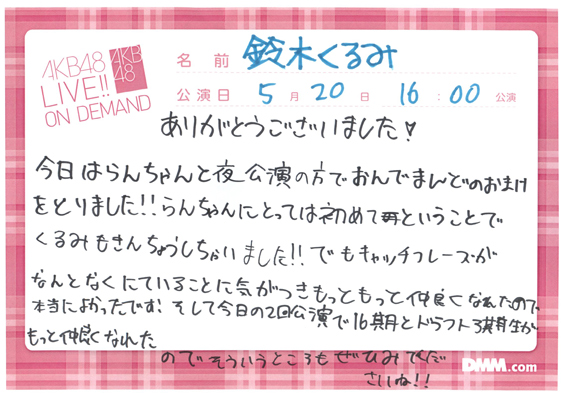 AKB48
LIVE!!
ON DEMAND
AKB
48
名前 鈴木くるみ
公演日 5月20日 16:00 公演
ありがとうございました♥
今日はらんちゃんと夜公演の方でおんでまんどのおまけ
をとりました!!らんちゃんにとっては初めてということで
くるみもきんちょうしちゃいました!!でもキャッチフレーズが
なんとなくにていることに気がつきもっともっと仲良くなれたので
本当によかったです。そして今日の2回公演で16期とドラフト3期生が
もっと仲良くなれた
のでそういうところもぜひみてくだ
さいね!!
DMM.com